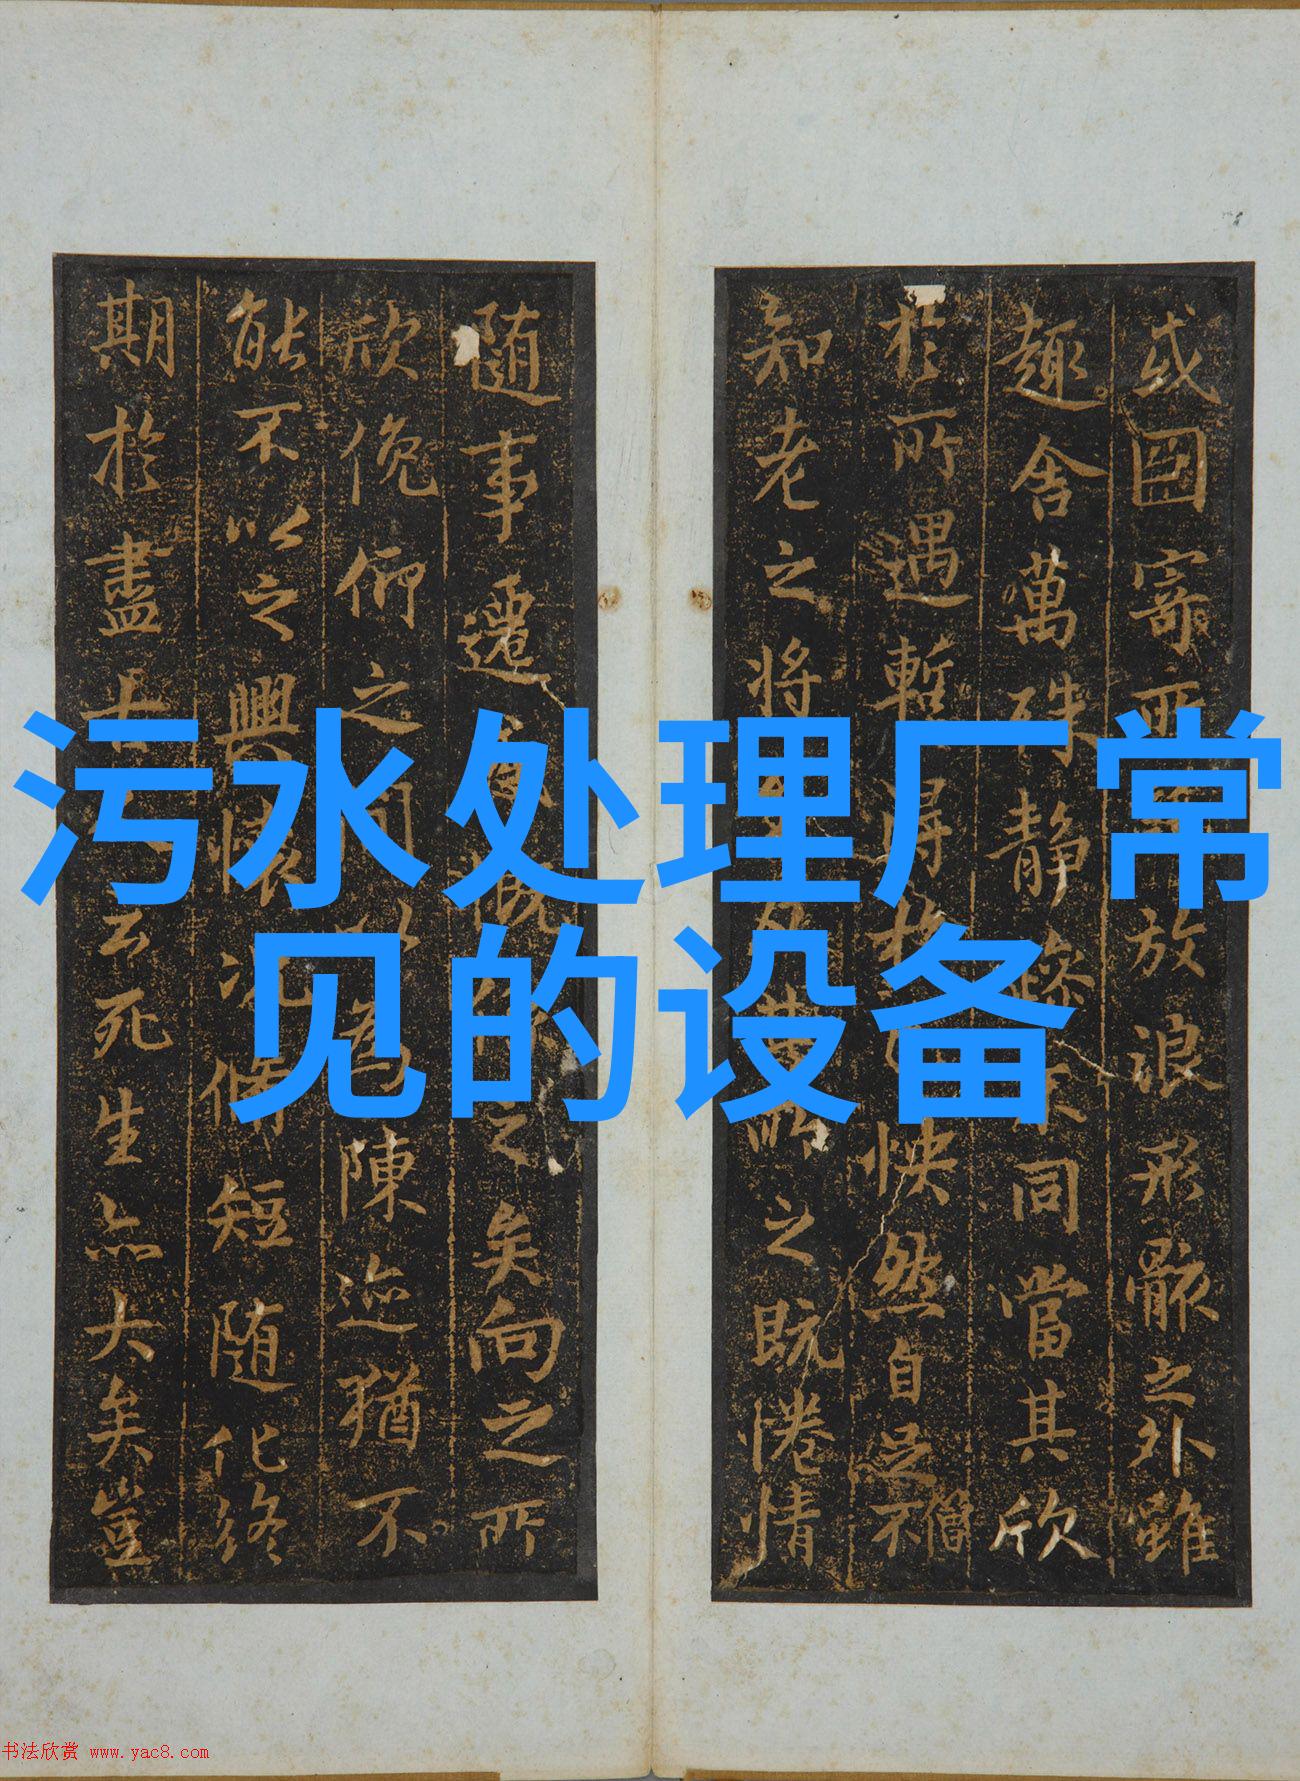 污水处理厂常
见的设备
或囙寄所放浪形骸之外雖
趣舍萬殊靜躁不同當其欣
於所遇暫得於快然自足不僧
知老之將所之既惓情
隨事遷係之矣向之所
欣俛仰之間以為陳迹猶不
能不以之興懷況脩短隨化終
期於盡古云死生亦大矣豈
书法欣赏 www.yac8.com